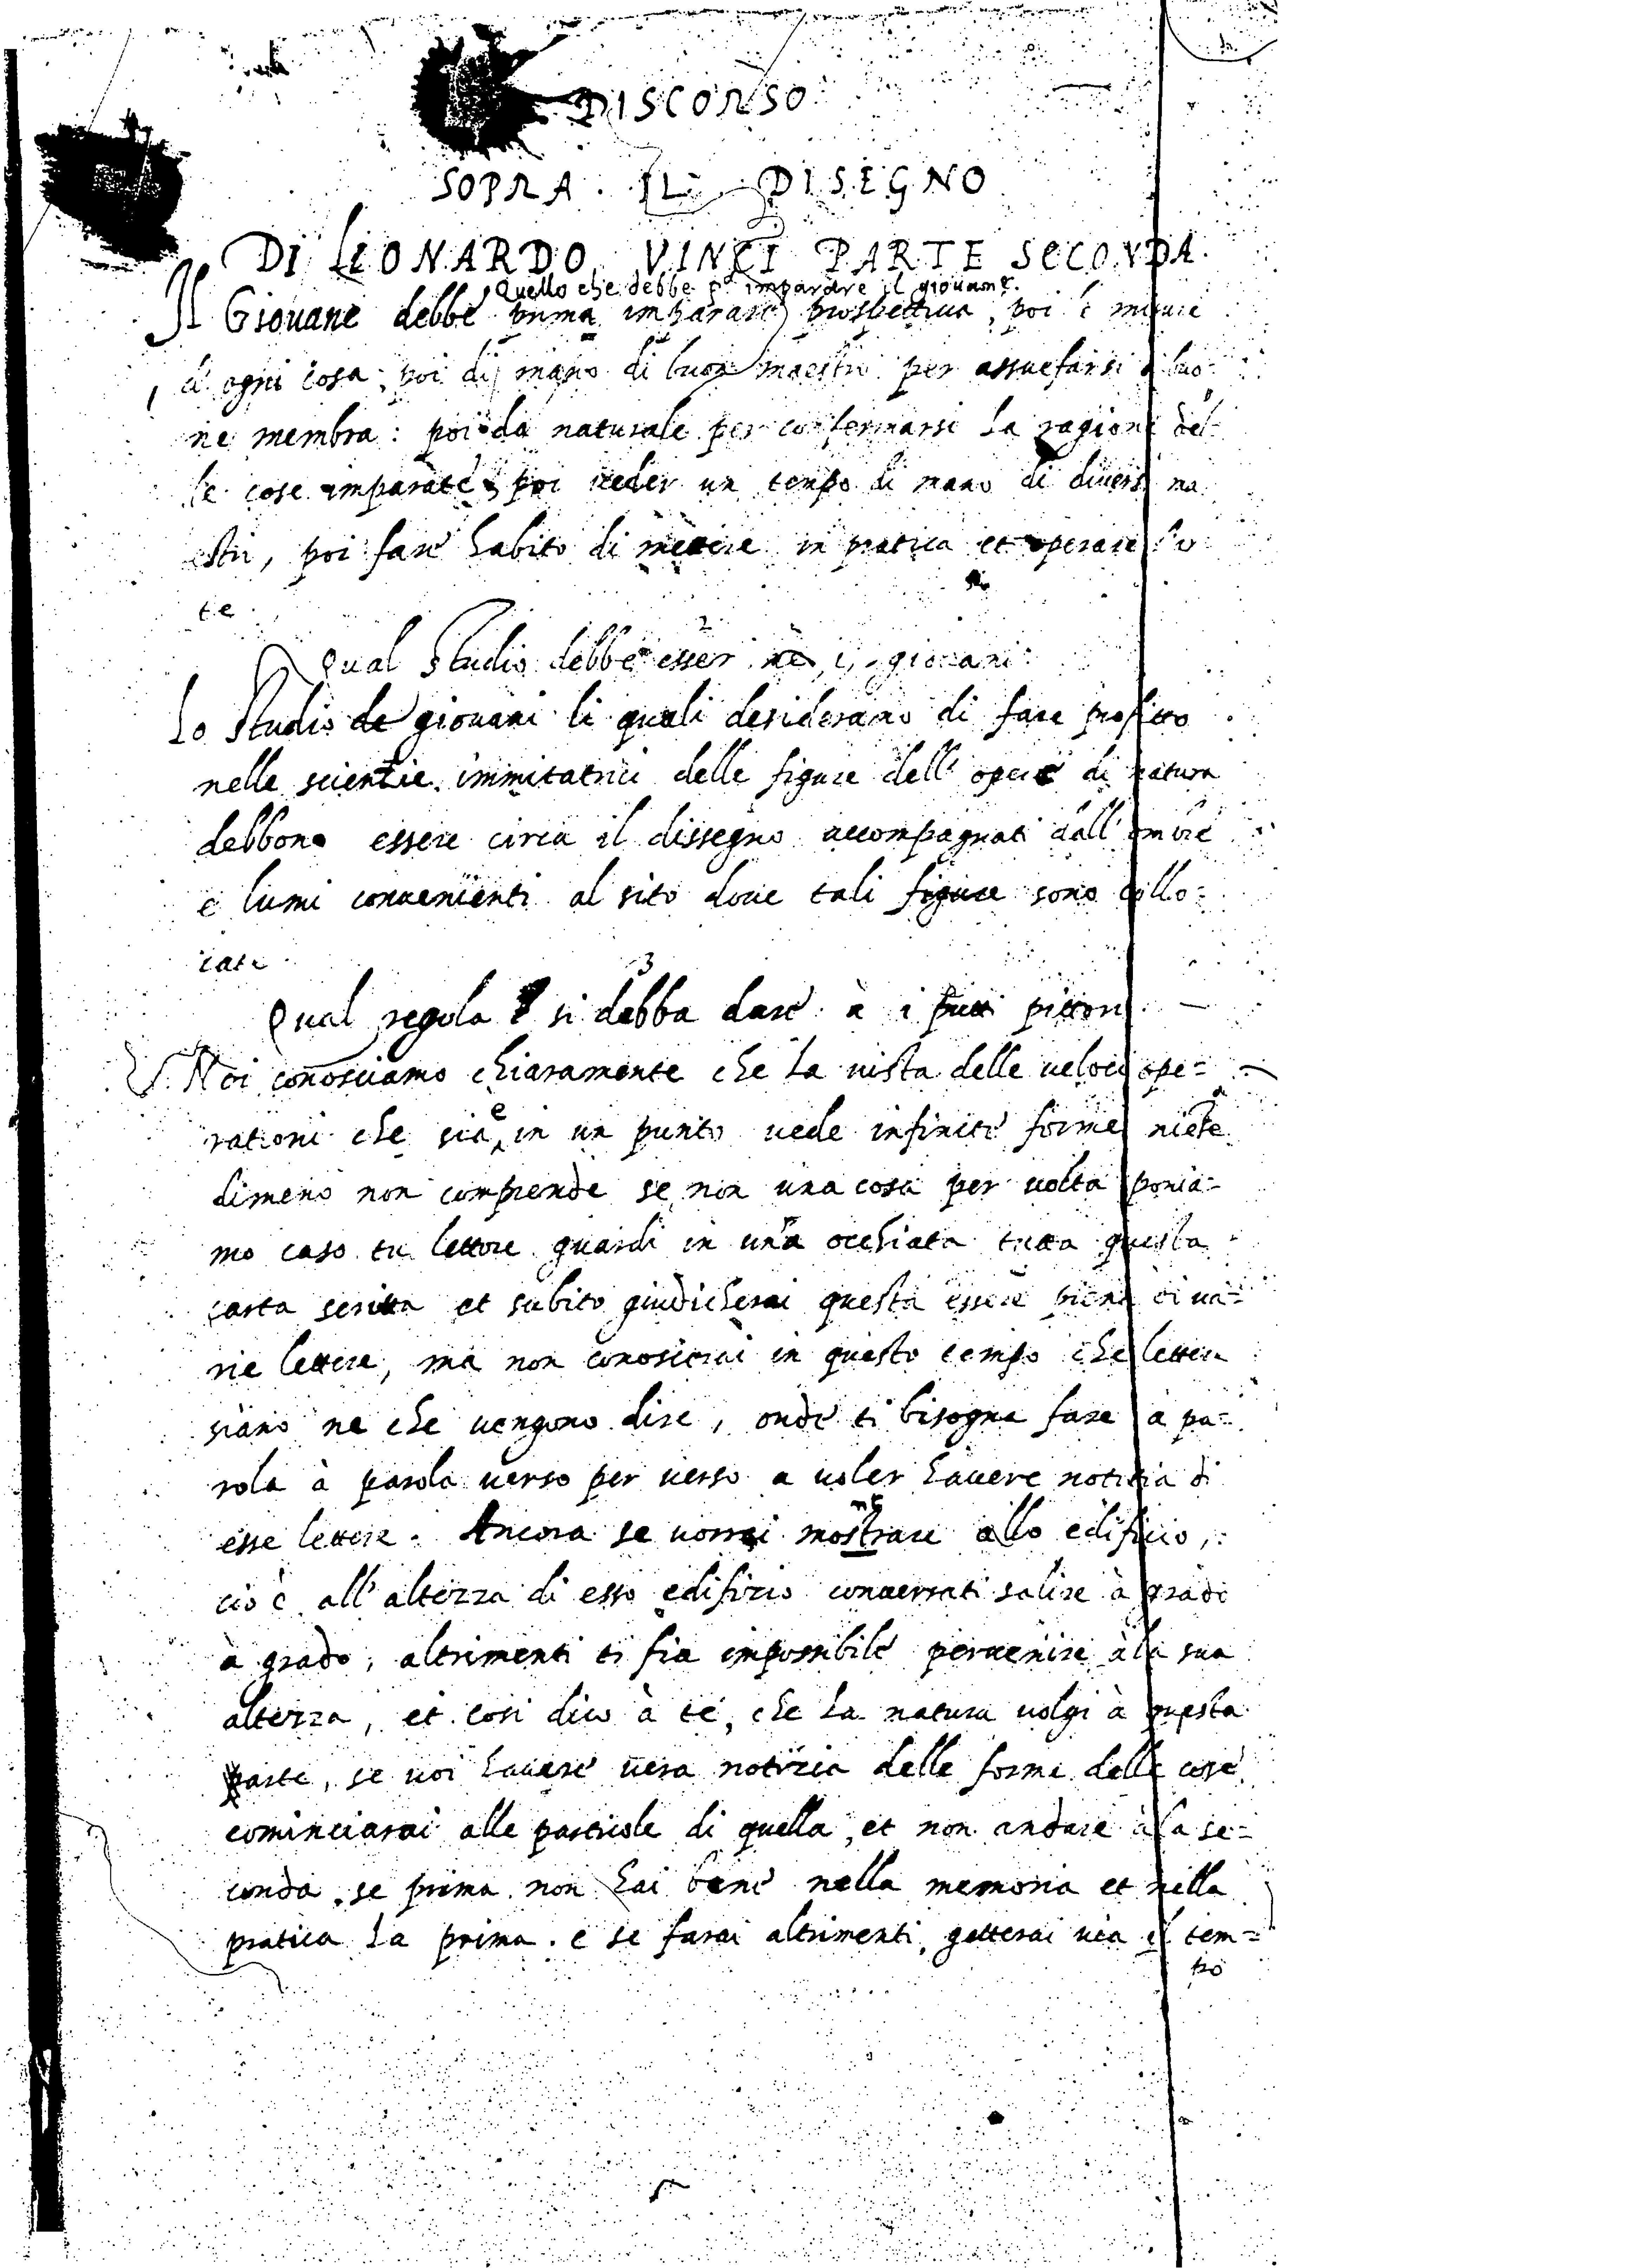 DISCORSO
SOPRA IL DISEGNO
DI LIONARDO VINCI PARTE SECONDA.
Quello che debbe pª imparare il giovane.
Il Giovane debbe prima imparare prospettiva, poi le misure
d'ogni cosa; poi di mano di buon maestro per assuefarsi a buo
ne membra: poi da naturale per confermarsi la ragione del
le cose imparate, poi veder un tempo di mano di diversi ma
estri, poi fare habito di mettere in pratica et operare l'ar
te.
2
Qual studio debbe esser ne i giovani
Lo studio de giovani li quali desiderano di fare profitto
nelle scientie immitatrici delle figure dell'opere di natura
debbono essere circa il dissegno accompagnati dall'ombre
e lumi convenienti al sito dove tali figure sono collo=
cate
3
Qual regola si debba dare à i putti pittori
Noi conosciamo chiaramente che la vista delle veloci ope=
rationi che sia e in un punto vede infinite forme niete
dimeno non comprende se non una cosa per volta ponia=
mo caso tu lettore guardi in una occhiata tutta questa
carta scritta et subito giudicherai questa essere piena di va=
rie lettere, ma non conoscerai in questo tempo che lettere
siano ne che vengono dire, onde ti bisogna fare a pa=
rola à parola verso per verso a voler havere notitia di
esse lettere. Ancora se vorrai montare allo edificio,
cio è all'altezza di esso edifizio converrati salire à grado
à grado, altrimenti ti fia impossibile pervenire à la sua
altezza, et cosi dico à te, che la natura volgi à questa
parte, se voi havere vera notizia delle forme delle cose
cominciarai alle particole di quella, et non andare à la se=
conda, se prima non hai bene nella memoria et nella
pratica la prima. e se farai altrimenti, getterai via il tem=
po